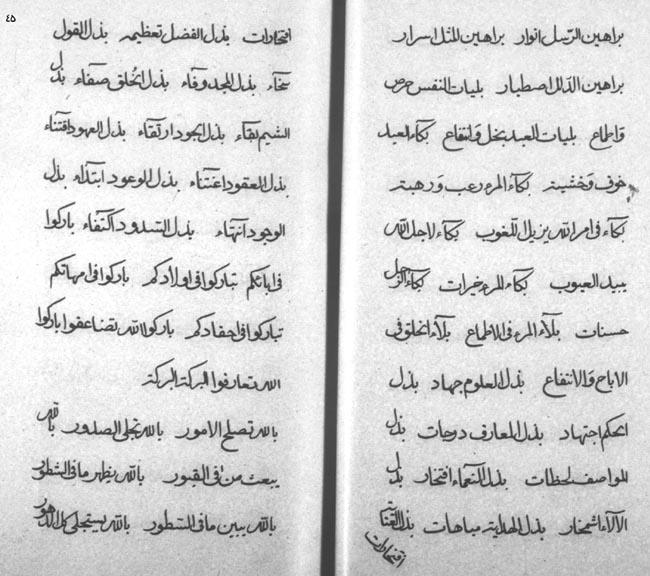 براهين الرسل انوار براهين المثل اسرار
براهين الدلل اصطبار بليات النفس حرص
واطماع بليات العبد بخل وانتفاع بكاء العبد
خوف وخشية بكاء المرء رعب ورهبة
بكاء في امر الله يزيل اللغوب بكاء لاجل الله
يبيد العيوب بكاء المرء خيرات بكاء الرجل
حسنات بلاء المرء في الاطماع بلاء الخلق في
الارباح والانتفاع بذل العلوم جهاد بذل
الحكم اجتهاد بذل المعارف درجات بذل
المواصف لحظات بذل النعماء افتخار بذل
الآلاء اشمخار بذل الهداية مباهات بذل
افتخارات
٤٥
افتخارات بذل الفضل تعظيم بذل القول
سخاء بذل المجد وقاء بذل الخلق صفاء بذل
الشيم نقاء بذل الجود ارتقاء بذل العهود اقتناء
بذل العقود اغتناء بذل الوعود ابتداء بذل
الوجود انتهاء بذل السدود اكتفاء باركوا
في ابائكم تباركوا في اولادكم باركوا في امهاتكم
تباركوا في احفادكم باركوا لله تضاعفوا باركوا
الله تعارفوا البركة البركة
بالله تصلح الامور بالله تجلى الصدور بالله
يبعث من في القبور بالله يظهر ما في الشطور
بالله يبين ما في السطور بالله يستجلى كل الدهور